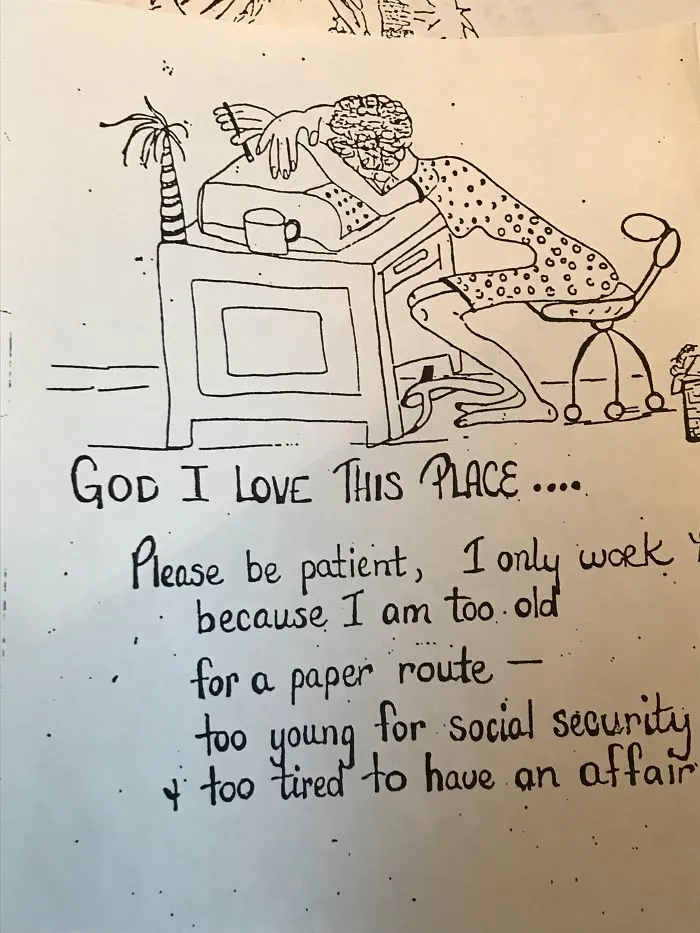 GOD I LOVE THIS PLACE ....
Please be patient, I only work
because I am too old
for a paper route —
too young for social security
& too tired to have an affair